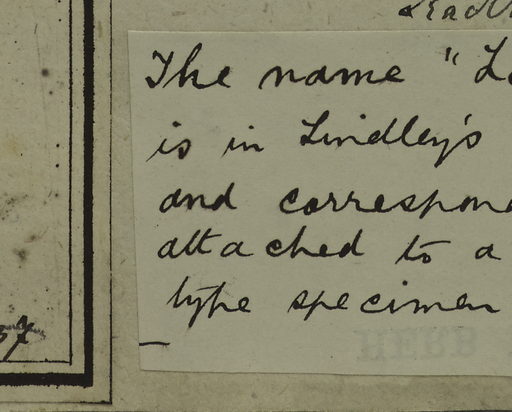 The name "L
is in Lindley's
and correspond
attached to a
type specimen
HERB
57